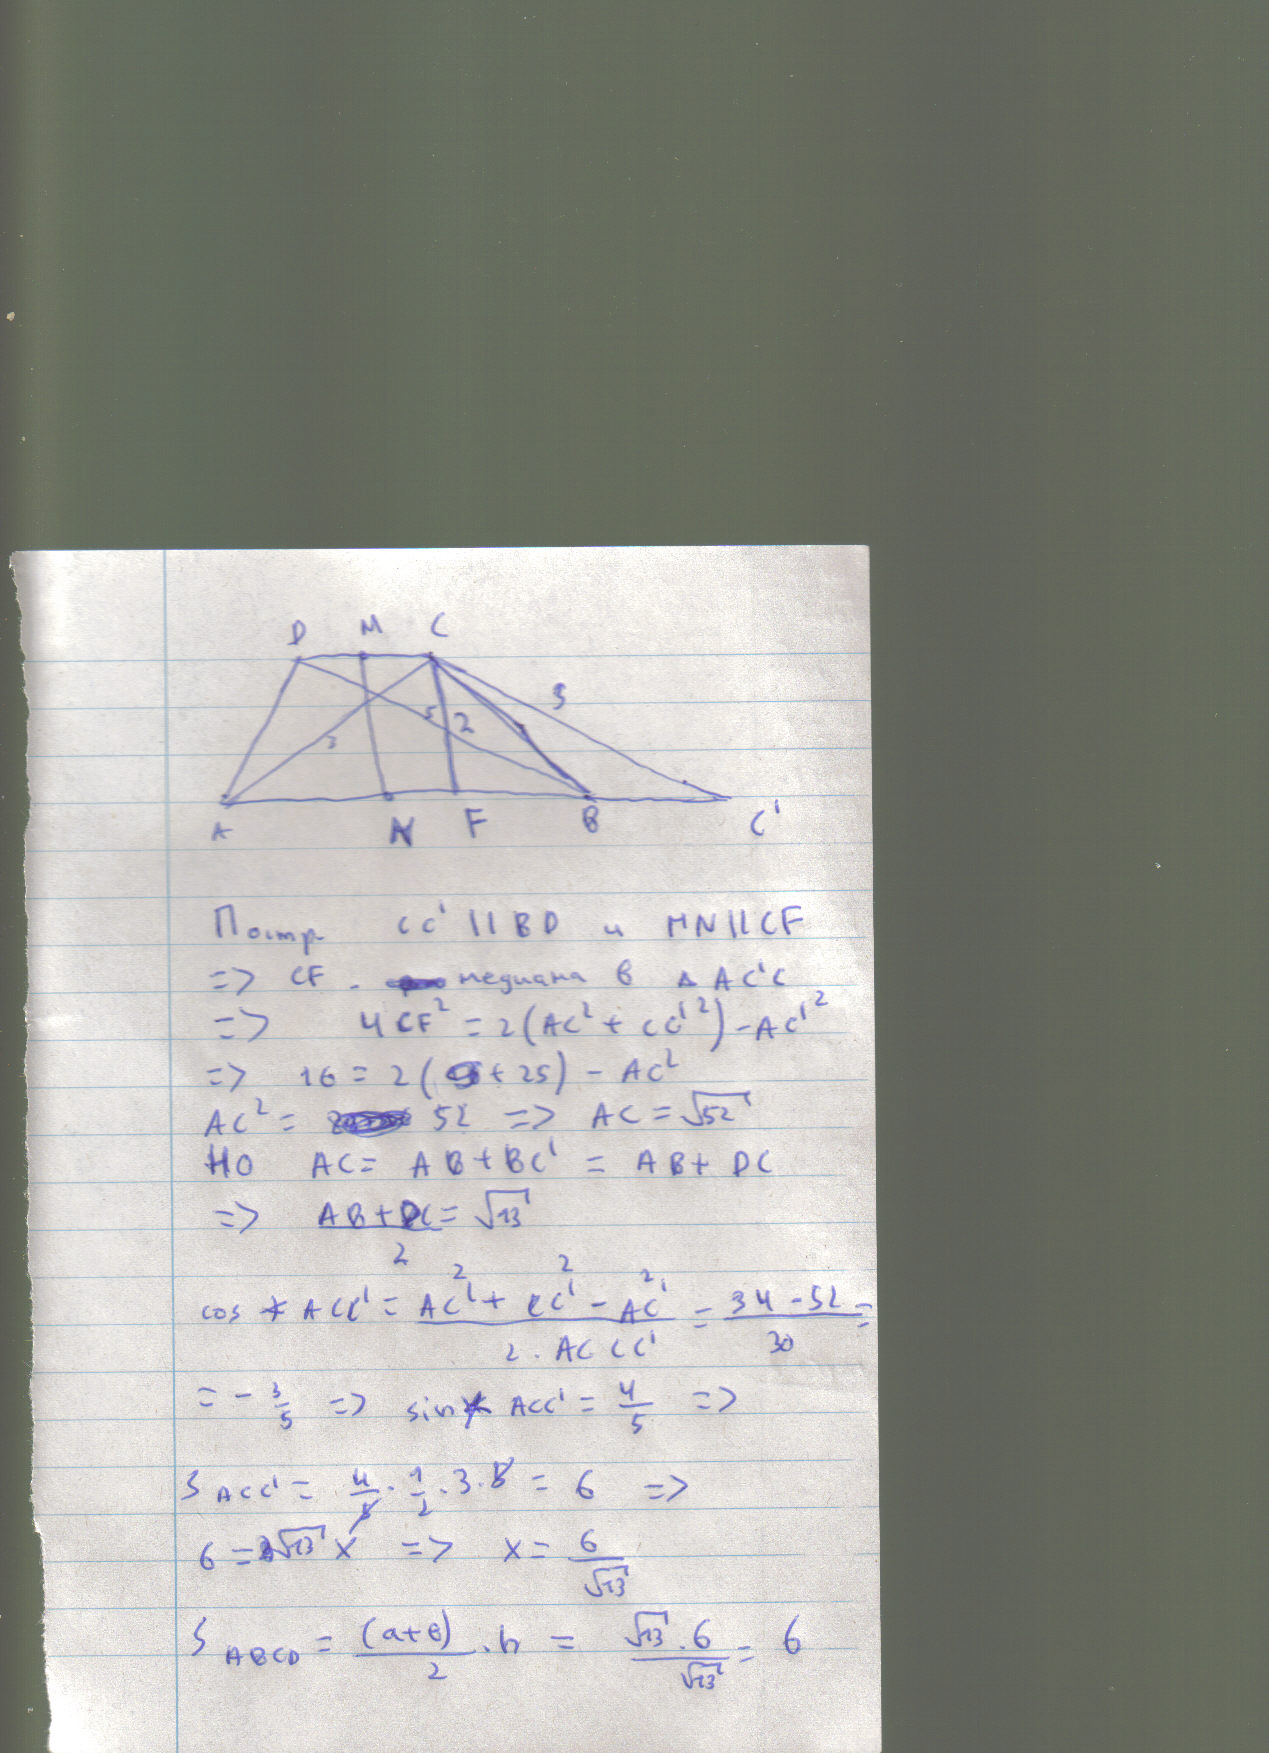 D M C
3 5 2 5
A N F B C'
Постр. CC' || BD и MN || CF
=> CF - медиана в △ AC'C
=> 4CF² = 2(AC² + CC'²) - AC'²
=> 16 = 2(9 + 25) - AC²
AC² = 52 => AC = √52
НО AC = AB + BC' = AB + DC
=> (AB + DC)/2 = √13
cos ∢ ACC' = (AC² + CC'² - AC'²)/(2 . AC CC') = (34 - 52)/30 =
= - 3/5 => sin ∢ ACC' = 4/5 =>
S ACC' = 4/5 . 1/2 . 3 . 5 = 6 =>
6 = √13 x => x = 6/√13
S ABCD = (a+b)/2 . h = (√13 . 6)/√13 = 6